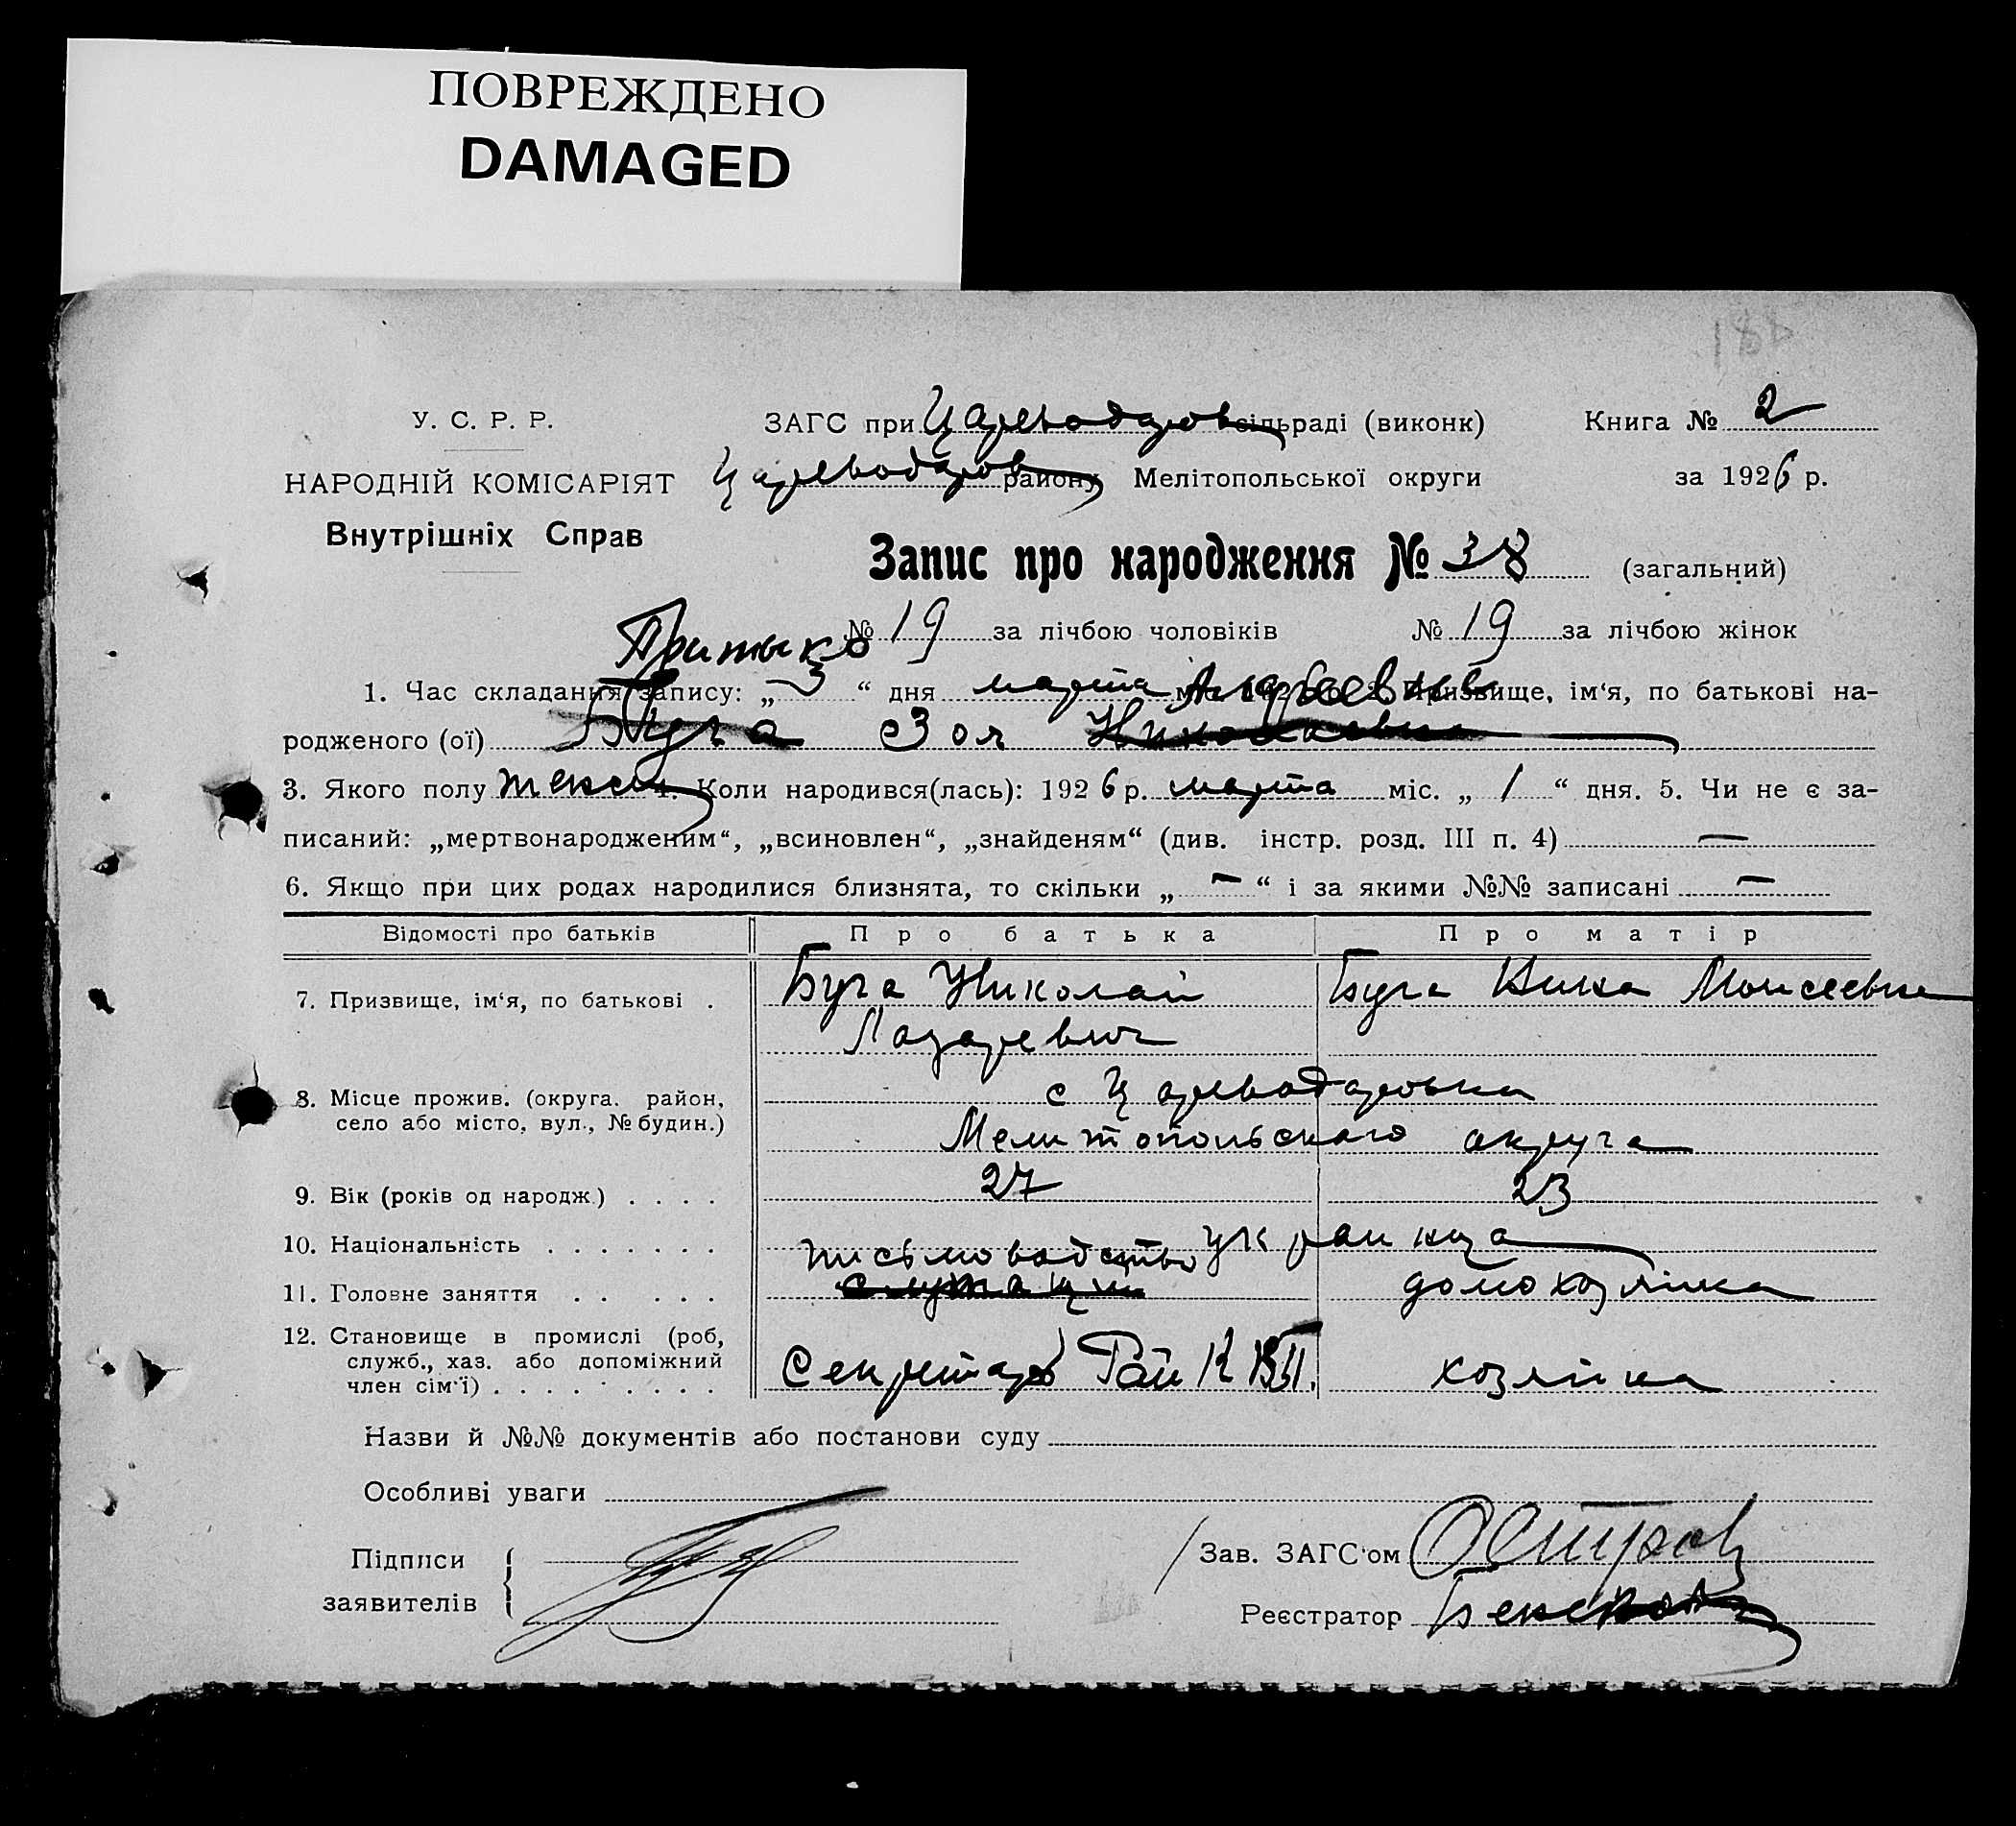 ПОВРЕЖДЕНО
DAMAGED
188
У. С. Р. Р.
ЗАГС при Цареводаров сільраді (виконк)
Книга № 2
НАРОДНІЙ КОМІСАРІЯТ
Цареводаров району Мелітопольської округи
за 1926 р.
Внутрішніх Справ
Запис про народження № 38 (загальний)
№ 19 за лічбою чоловіків № 19 за лічбою жінок
Притыко
1. Час складання запису: „ 3 “ дня марта 2. Призвище, ім‘я, по батькові на-
Андреевна
родженого (ої) Буга Зоя Николаевна
3. Якого полу женск 4. Коли народився(лась): 1926 р. марта міс. „ 1 “ дня. 5. Чи не є за-
писаний: „мертвонародженим“, „всиновлен“, „знайденям“ (див. інстр. розд. III п. 4) —
6. Якщо при цих родах народилися близнята, то скільки „ — “ і за якими №№ записані —
Відомості про батьків
Про батька
Про матір
7. Призвище, ім‘я, по батькові .
Буга Николай
Буга Нина Моисеевна
Лазаревич
8. Місце прожив. (округа. район,
село або місто, вул., № будин.)
с Цареводаровка
Мелитопольского округа
9. Вік (років од народж.) . . . .
27
23
10. Національність . . . . . . .
украинца
11. Головне заняття . . . . .
письмоводство
служащий
домохозяйка
12. Становище в промислі (роб,
служб., хаз. або допоміжний
член сім‘ї) . . . . . . . . .
Секретарь Рай К
хозяйка
Назви й №№ документів або постанови суду
Особливі уваги
Підписи
заявителів
Зав. ЗАГС‘ом
Реєстратор